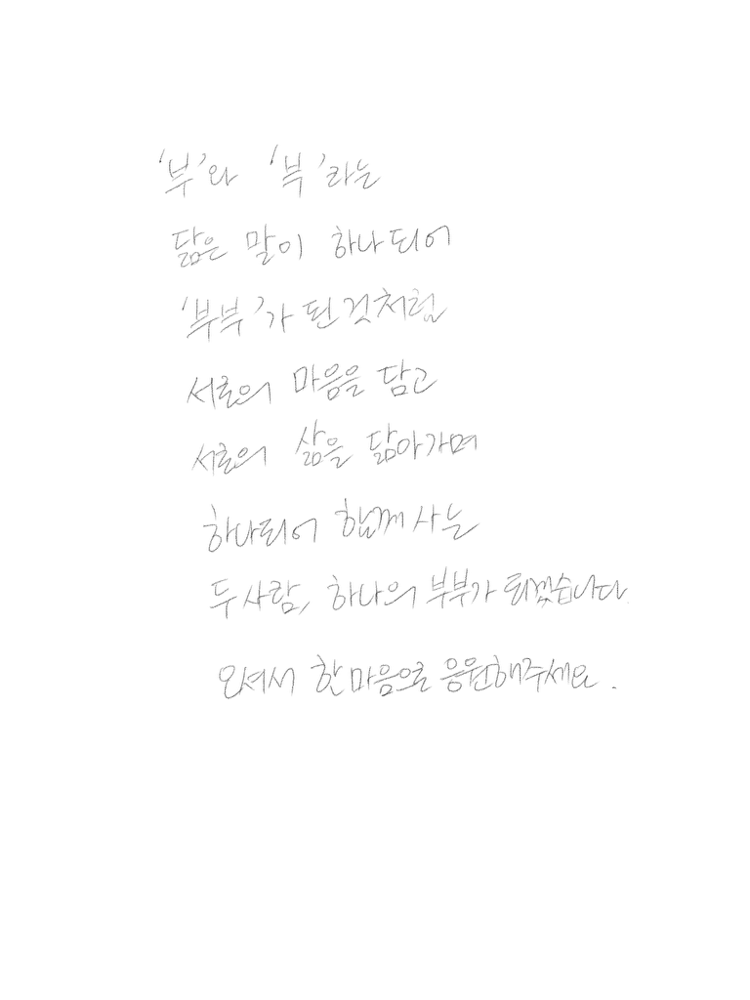 '부'와 '부'라는
닮은 말이 하나되어
'부부'가 된 것처럼
서로의 마음을 담고
서로의 삶을 닮아가며
하나되어 함께 사는
두 사람, 하나의 부부가 되겠습니다
오셔서 한 마음으로 응원해주세요.